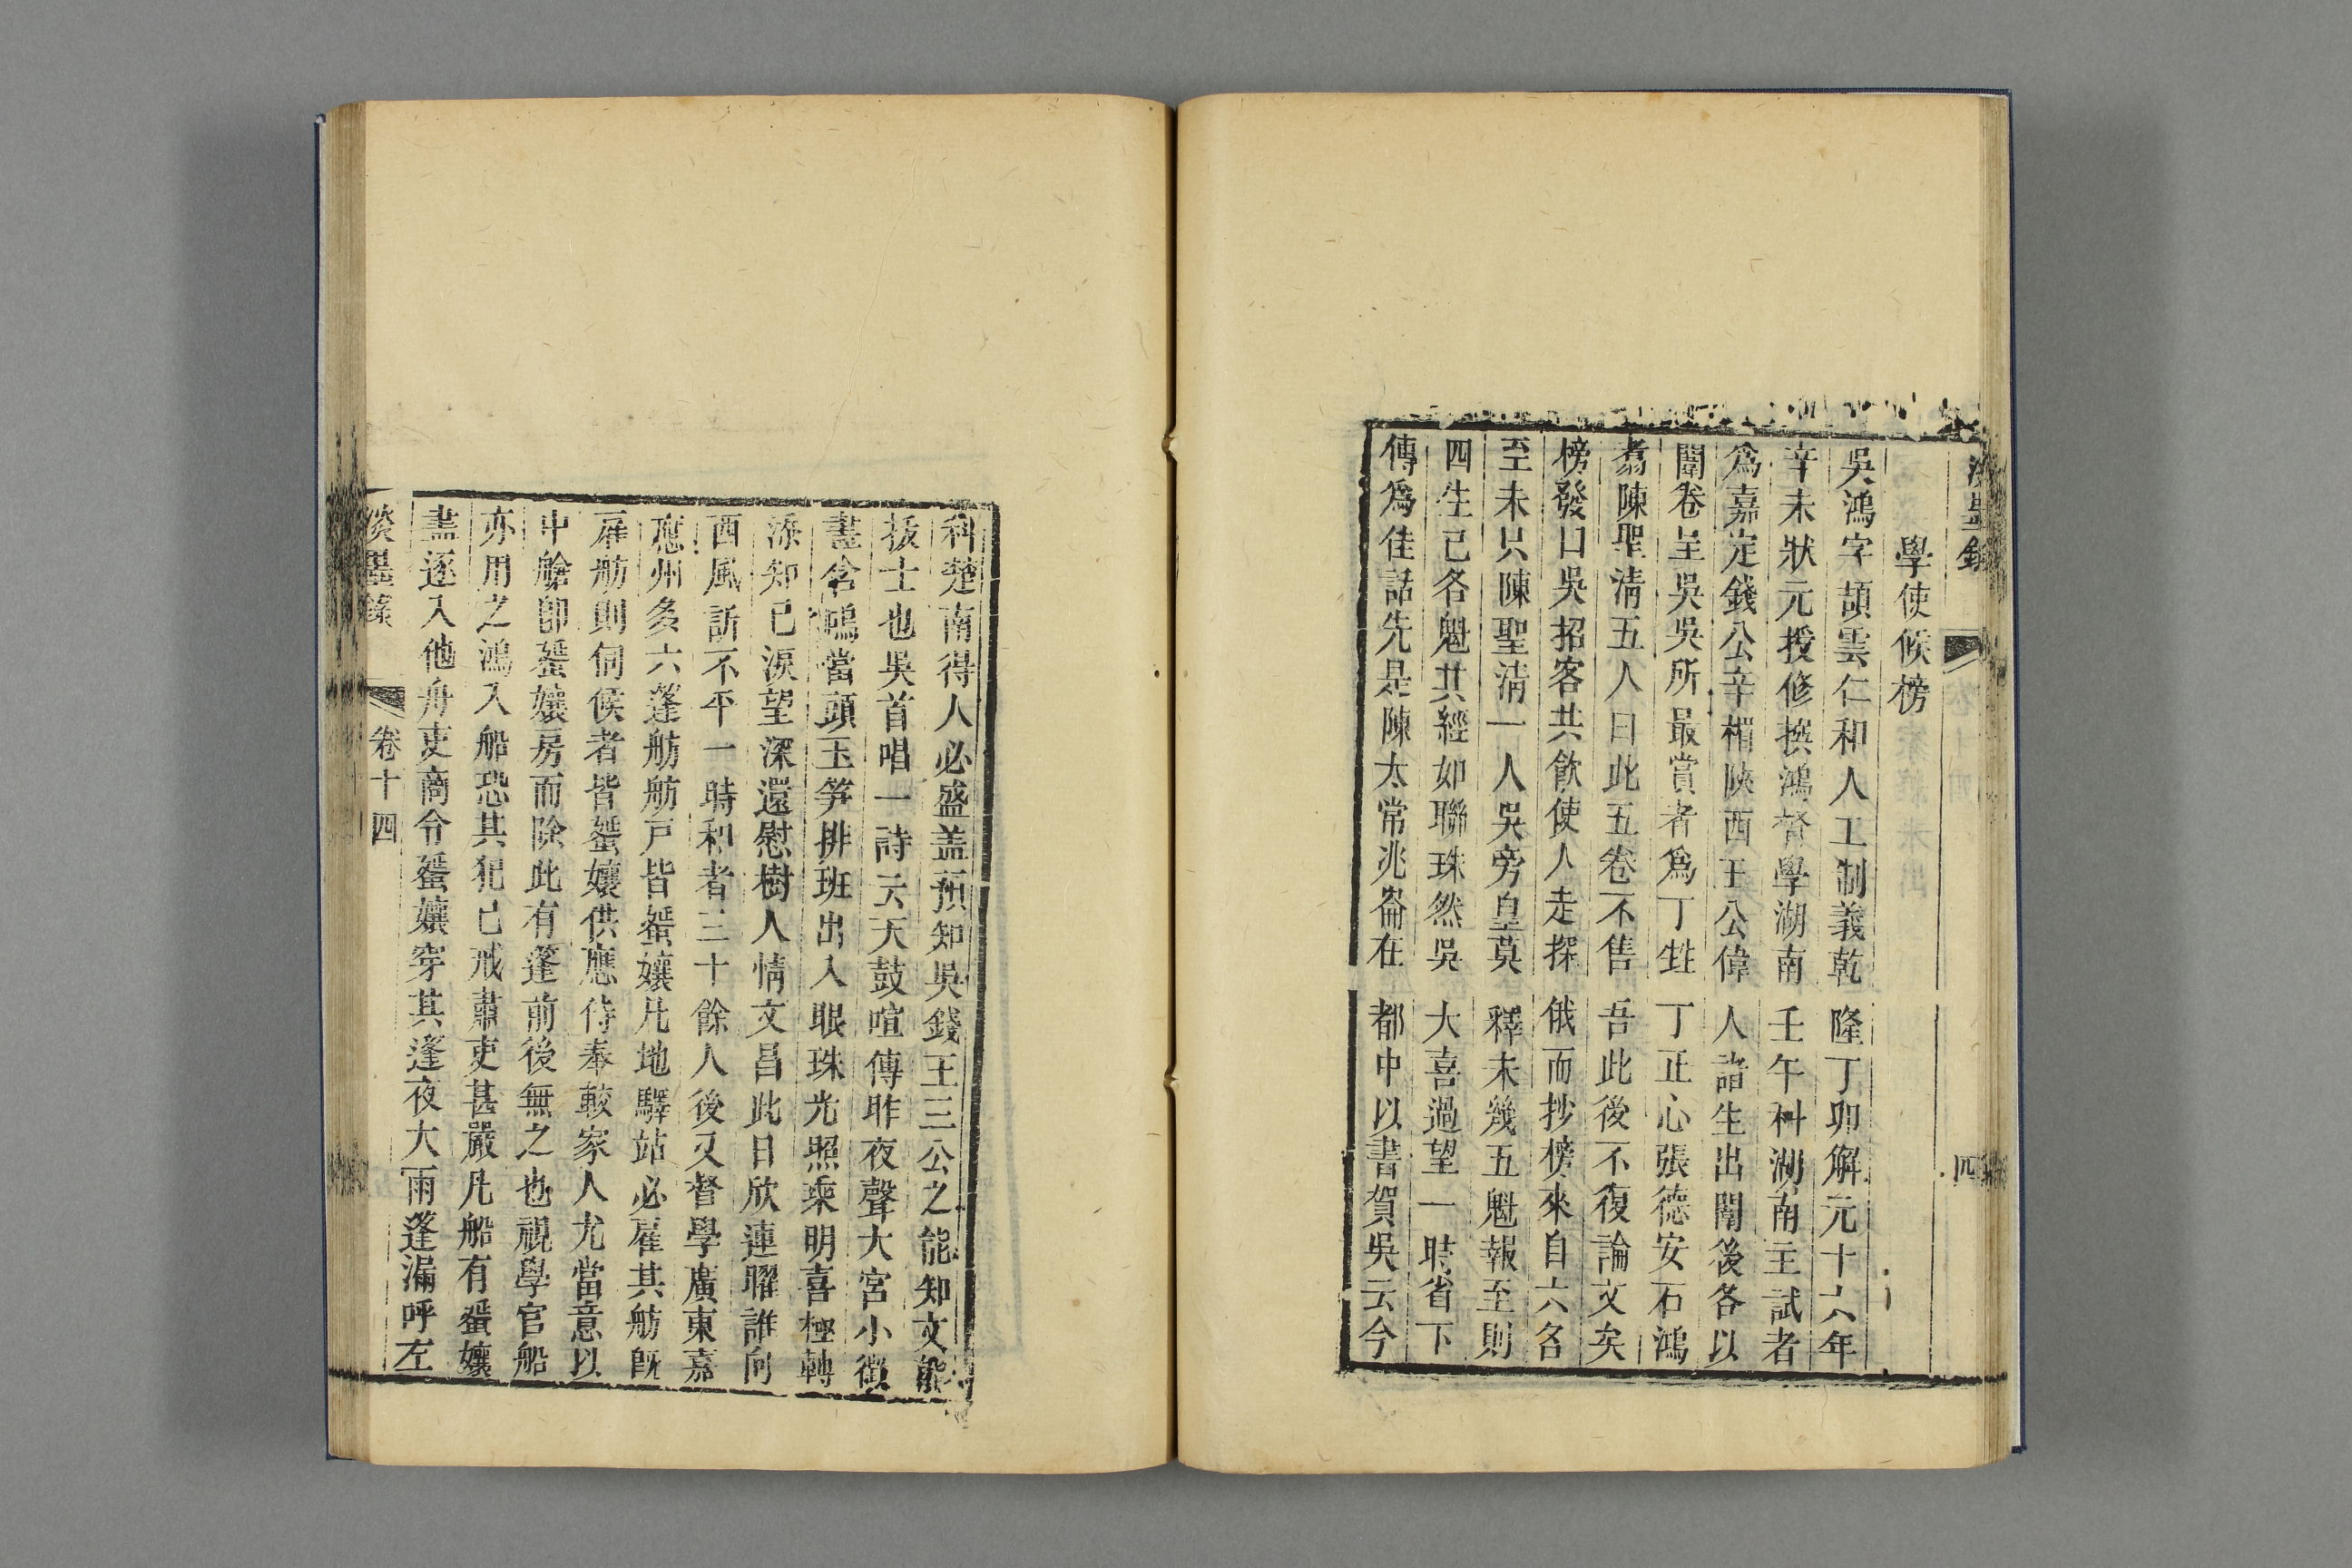 淡墨錄
四
學使候榜
吳鴻字頡雲仁和人工制義乾隆丁卯解元十六年
辛未狀元授修撰鴻督學湖南壬午科湖南主試者
爲嘉定錢公辛楣陝西王公偉人諸生出闈後各以
闈卷呈吳吳所最賞者爲丁甡丁正心張德安石鴻
翥陳聖淸五人曰此五卷不售吾此後不復論文矣
榜發日吳招客共飮使人走探俄而抄榜來自六名
至末只陳聖淸一人吳旁皇莫釋未幾五魁報至則
四生已各魁其經如聯珠然吳大喜過望一時省下
傳爲佳話先是陳太常兆崙在都中以書賀吳云今
科楚南得人必盛蓋預知吳錢王三公之能知文能
拔士也吳首唱一詩云天鼓喧傳昨夜聲大宮小徵
盡含鳴當頭玉笋排班出入眼珠光照乘明喜極轉
添知己淚望深還慰樹人情文昌此日欣連曜誰向
西風訴不平一時和者三十餘人後又督學廣東嘉
應州多六蓬舫舫戸皆蜑孃凡地驛站必雇其舫旣
雇舫則伺候者皆蜑孃供應侍奉較家人尤當意以
中艙卽蜑孃房而除此有蓬前後無之也視學官船
亦用之鴻入船恐其犯已戒肅吏甚嚴凡船有蜑孃
盡逐入他舟吏啇令蜑孃穿其蓬夜大雨蓬漏呼左
淡墨錄
卷十四